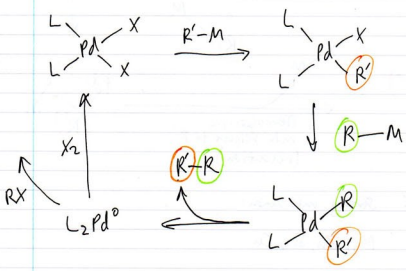 L
X
Pd
L
X
R'-M
L
X
Pd
L
R'
R-M
L
R
Pd
L
R'
R'-R
L₂Pd⁰
X₂
RX